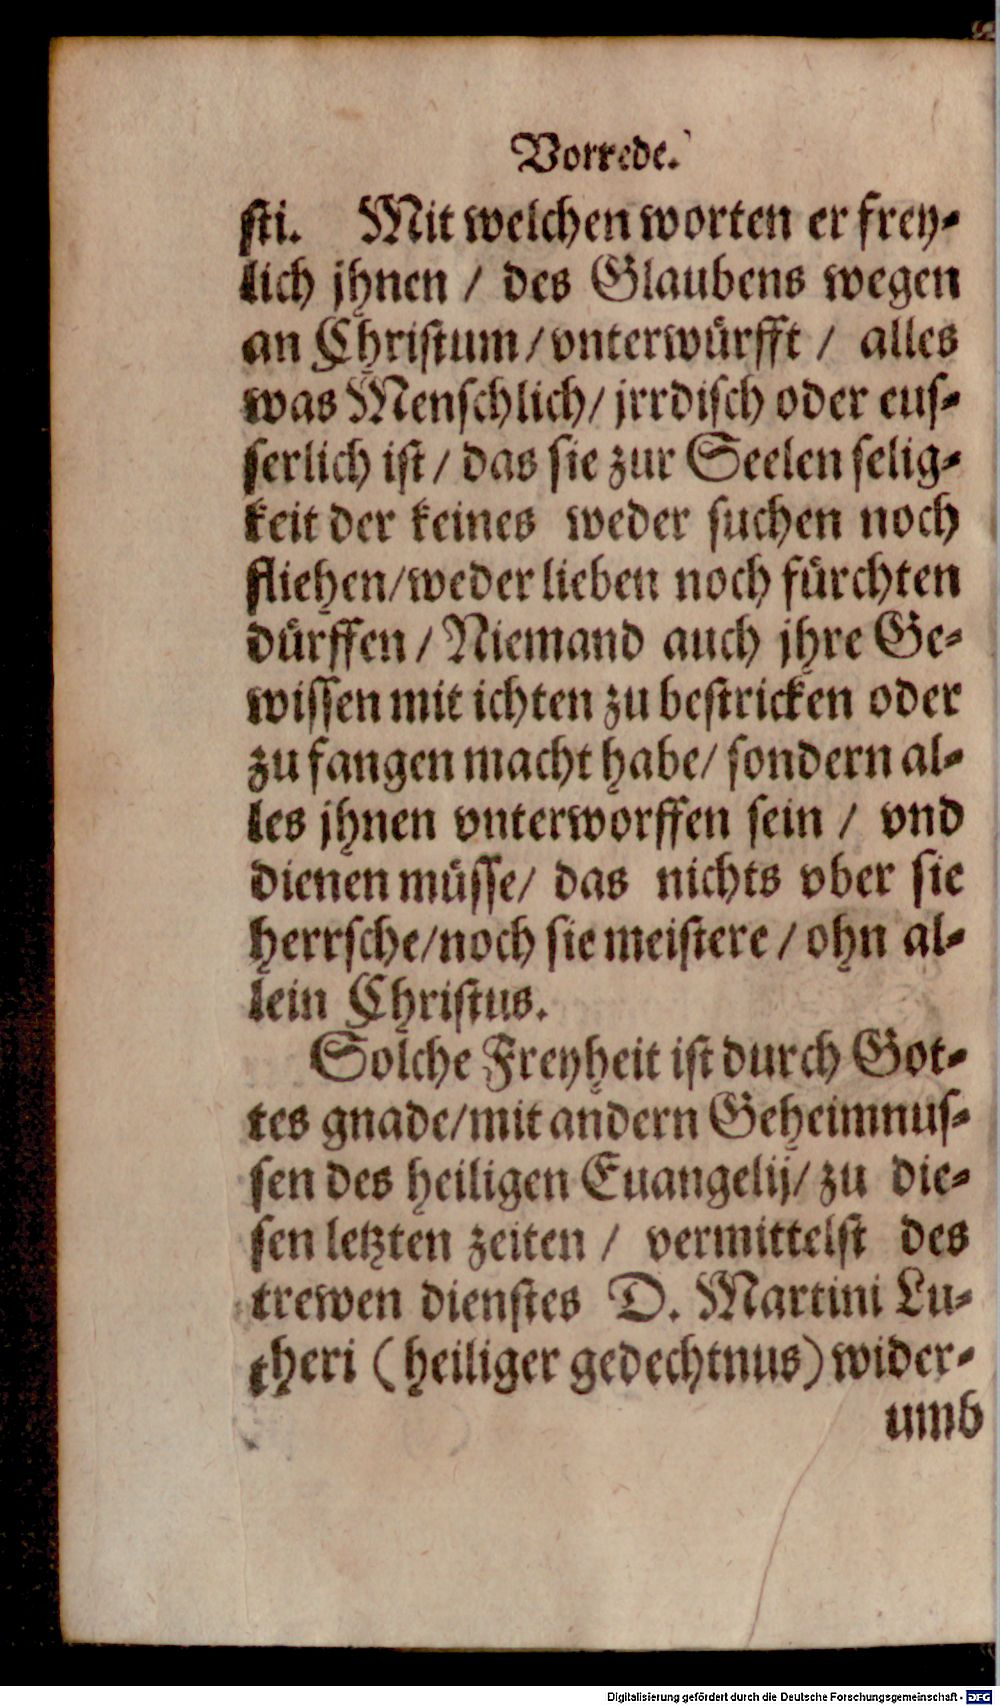 Vorrede.
sti. Mit welchen worten er frey-
lich jhnen / des Glaubens wegen
an Christum / vnterwürfft / alles
was Menschlich / jrrdisch oder eus-
serlich ist / das sie zur Seelen selig-
keit der keines weder suchen noch
fliehen / weder lieben noch fürchten
dürffen / Niemand auch jhre Ge-
wissen mit ichten zu bestricken oder
zu fangen macht habe / sondern al-
les jhnen vnterworffen sein / vnd
dienen müsse / das nichts vber sie
herrsche / noch sie meistere / ohn al-
lein Christus.
Solche Freyheit ist durch Got-
tes gnade / mit andern Geheimnus-
sen des heiligen Euangelij / zu die-
sen letzten zeiten / vermittelst des
trewen dienstes D. Martini Lu-
theri (heiliger gedechtnus) wider-
umb
Digitalisierung gefördert durch die Deutsche Forschungsgemeinschaft - DFG